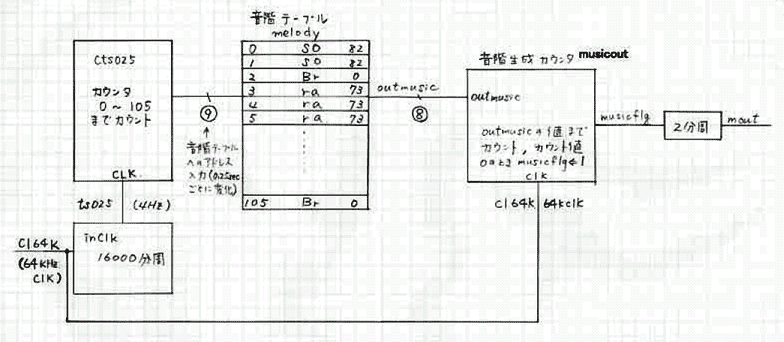 音階テーブル
melody
0 SO 82
1 SO 82
2 Br 0
3 ra 73
4 ra 73
5 ra 73
105 Br 0
cts025
カウンタ
0～105
までカウント
CLK
⑨
音階テーブル
へのアドレス
入力(0.25sec
ごとに変化)
ts025 (4Hz)
inClk
16000分周
Cl64K
(64KHz
ClK)
outmusic
⑧
音階生成カウンタ musicout
outmusic
outmusicの値まで
カウント,カウント値
0のときmusicflg←1
clk
Cl64K 64kclk
musicflg
2分周
mout